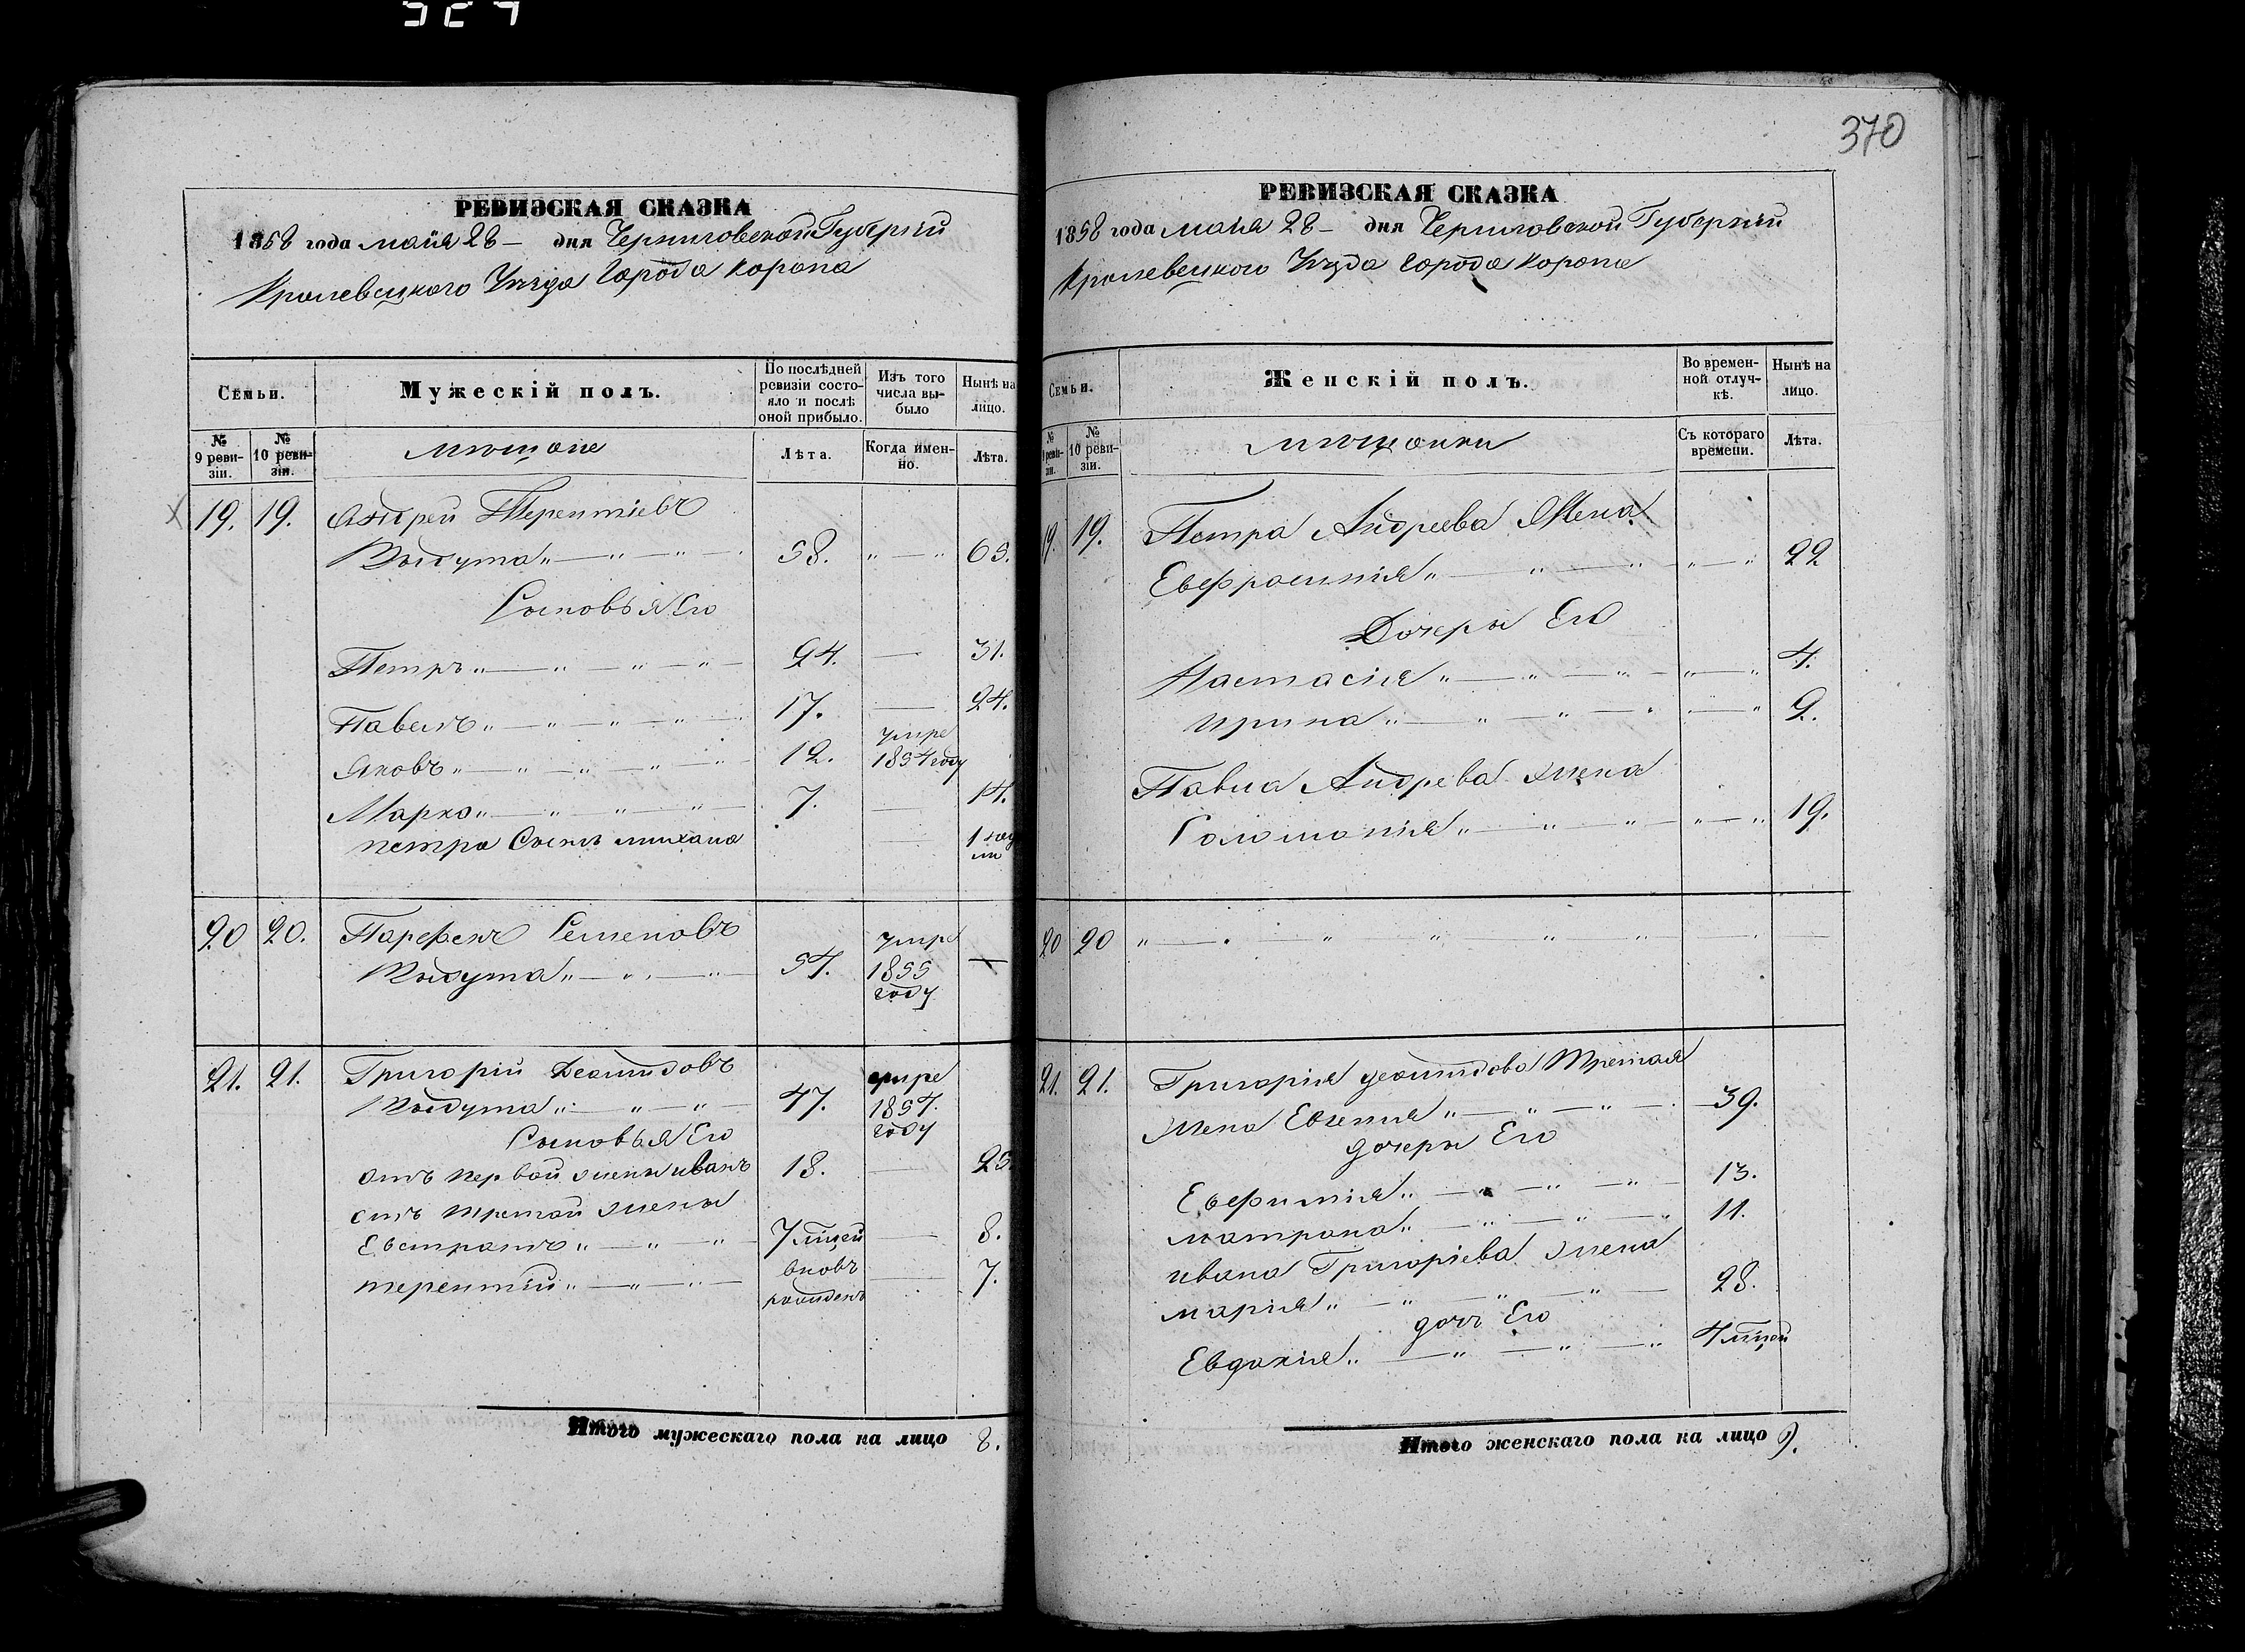 370
РЕВИЗСКАЯ СКАЗКА
1858 года мая 28 - дня Черниговской Губерніи
Кролевецкого Уезда Города Коропа
Семьи.
Мужескій полъ.
По послѣдней ревизіи состояло и послѣ оной прибыло.
Изъ того числа выбыло
Нынѣ на лицо.
№ 9 ревизіи.
№ 10 ревизіи.
мещане
Лѣта.
Когда именно.
Лѣта.
19. 19. Андрей Терентіевъ
58. 65.
Сыновья Его
Петръ 24. 31.
Павелъ 17. 24.
Яковъ 12. умре 1854 году
Марко 7. 14.
Петра Сынъ михаил 1
20 20. Парфенъ Семеновъ
54. умре 1855 году
21. 21. Григорій Демидовъ
47. умре 1857. году
Сыновья Его
отъ первой жены иванъ 18. 25
отъ третой жены
Евстратъ 7 мцей 8.
терентій вновь рожденъ 7.
Итого мужескаго пола на лицо 8.
РЕВИЗСКАЯ СКАЗКА
1858 года мая 28 - дня Черниговской Губерніи
Кролевецкого Уезда города Коропа
Семьи.
Женскій полъ.
Во временной отлучкѣ.
Нынѣ на лицо.
№ 9 ревизіи.
№ 10 ревизіи.
мещанки
Съ котораго времени.
Лѣта.
19. 19. Петра Андреева Жена
Евфросинія 22
Дочеры Его
Настасія 4.
Ирина 2.
Павла Андрева жена
Соломонія 19.
20 20
21. 21. Григорія демидова Третая
жена Евгения 39.
дочеры Его
Евфимія 13.
матрона 11.
ивана Григоріева жена
марія 28.
дочь Его
Евдокія 4 мцей
Итого женскаго пола на лицо 9.